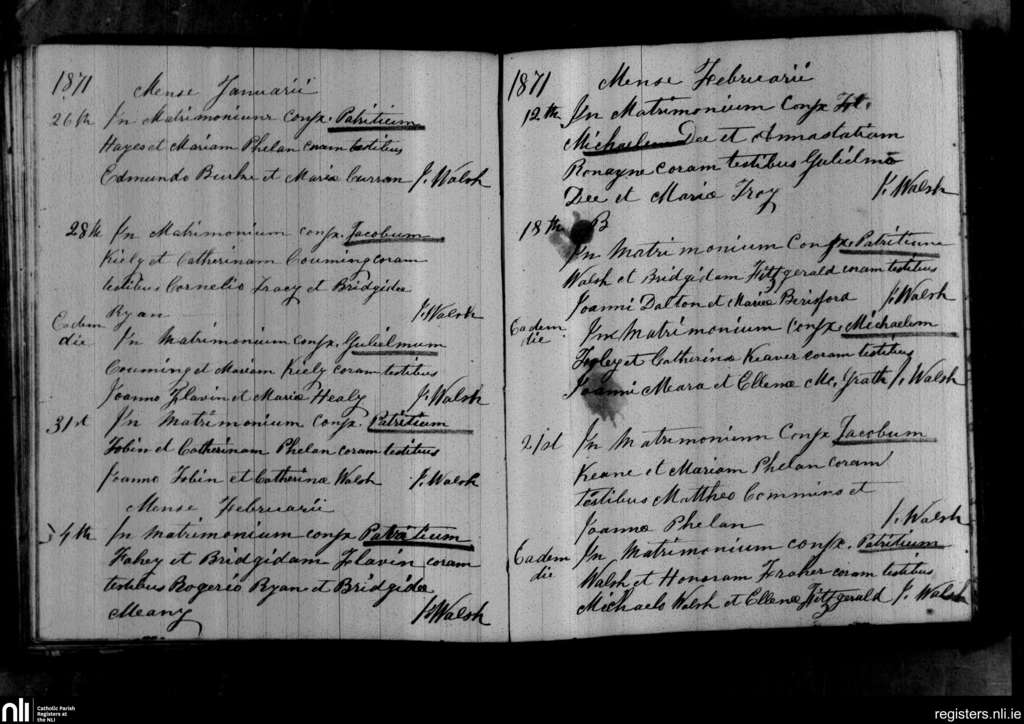 1871
Mense Januarii
26th In Matrimonium Conjx. Patritium
Hayes et Mariam Phelan coram testibus
Edmundo Burke et Maria Curran J. Walsh
28th In Matrimonium conjx. Jacobum
Kiely et Catherinam Couming coram
testibus Cornelio Tracy et Bridgidae
Ryan J. Walsh
Eadem die In Matrimonium conjx. Gulielmum
Couming et Mariam Kiely coram testibus
Joanno Flavin et Mariæ Healy J. Walsh
31st In Matrimonium conjx. Patritium
Tobin et Catherinam Phelan coram testibus
Joanno Tobin et Catherina Walsh J. Walsh
Mense Februarii
4th In Matrimonium conjx Patritium
Fahey et Bridgidam Flavin coram
testibus Rogerio Ryan et Bridgidæ
Meany J. Walsh
1871 Mense Februarii
12th In Matrimonium Conjx
Michaelem Dee et Annastatiam
Ronayne coram testibus Gulielmo
Dee et Mariæ Troy J. Walsh
18th B
In Matrimonium Conjx. Patritium
Walsh et Bridgidam Fitzgerald coram testibus
Joanni Dalton et Mariæ Berisford J. Walsh
Eadem die In Matrimonium conjx. Michaelem
et Catherina Keaver coram testibus
Joanni Meara et Ellenæ Mc. Grath J. Walsh
21st In Matrimonium Conjx Jacobum
Keane et Mariam Phelan coram
testibus Mattheo Commins et
Joannæ Phelan J. Walsh
Eadem die In Matrimonium conjx. Patritium
Walsh et Honoram Fraher coram testibus
Michaele Walsh et Ellenæ Fitzgerald J. Walsh
nli Catholic Parish
Registers at
the NLI
registers.nli.ie